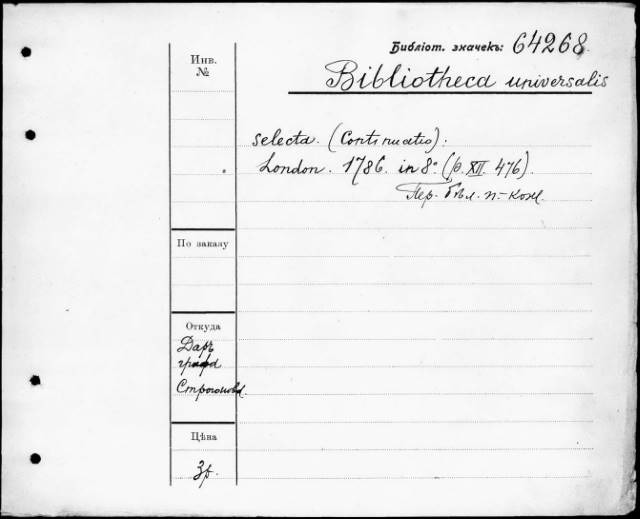 Библіот. значекъ: 64268
Инв.
№
Bibliotheca universalis
selecta. (Continuatio):
London. 1786. in 8° (p. XII. 476).
Пер. бѣл. п.-кож.
По заказу
Откуда
Даръ
графа
Строгонова.
Цѣна
3р.